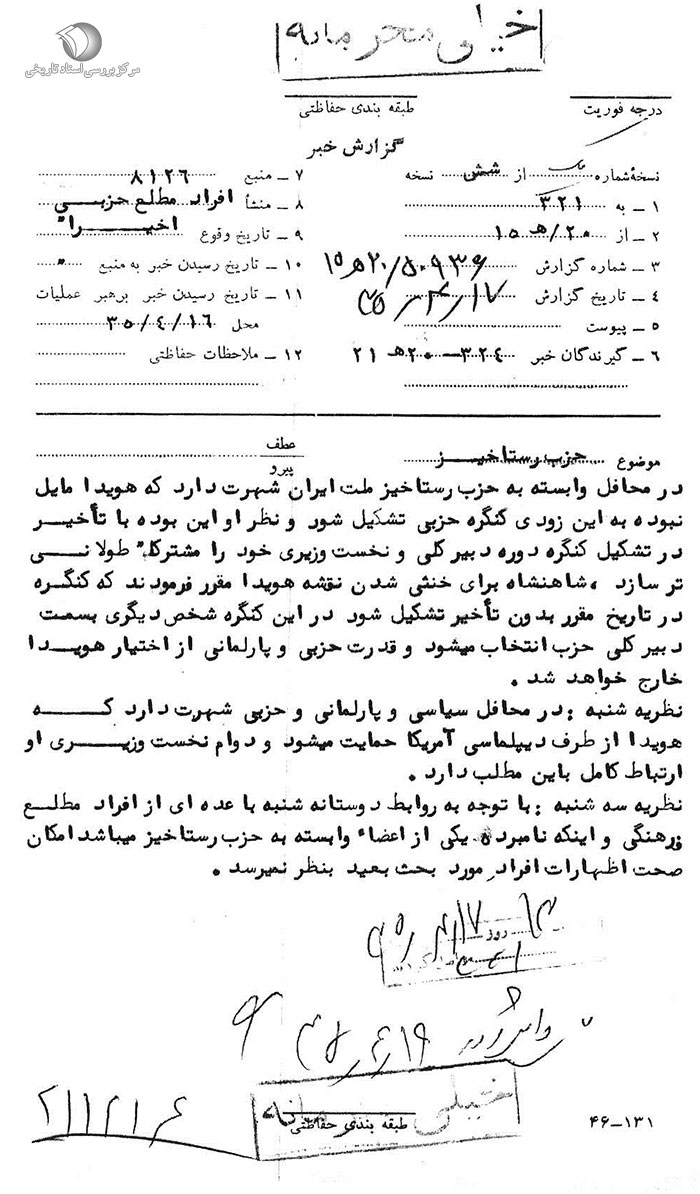 مرکز بررسی اسناد تاریخی
خیلی محرمانه
درجه فوریت
طبقه بندی حفاظتی
گزارش خبر
نسخهٔ شماره از شش نسخه
۱ ـ به ۳۲۱
۲ ـ از ۲۰/هـ ۱۵
۳ ـ شماره گزارش
۴ ـ تاریخ گزارش
۵ ـ پیوست
۶ ـ گیرندگان خبر ۳۲۴ـ۲۰هـ ۲۱
۷ ـ منبع ۸۱۲۶
۸ ـ منشأ افراد مطلع حزبی
۹ ـ تاریخ وقوع اخیراً
۱۰ ـ تاریخ رسیدن خبر به منبع "
۱۱ ـ تاریخ رسیدن خبر برهبر عملیات
محل ۳۵/۴/۱۶
۱۲ ـ ملاحظات حفاظتی
موضوع حزب رستاخیز
عطف
پیرو
در محافل وابسته به حزب رستاخیز ملت ایران شهرت دارد که هویدا مایل
نبوده به این زودی کنگره حزبی تشکیل شود و نظر او این بوده با تأخیر
در تشکیل کنگره دوره دبیر کلی و نخست وزیری خود را مشترکاً طولانی
تر سازد ، شاهنشاه برای خنثی شدن نقشه هویدا مقرر فرمودند که کنگره
در تاریخ مقرر بدون تأخیر تشکیل شود در این کنگره شخص دیگری بسمت
دبیر کلی حزب انتخاب میشود و قدرت حزبی و پارلمانی از اختیار هویدا
خارج خواهد شد .
نظریه شنبه : در محافل سیاسی و پارلمانی و حزبی شهرت دارد که
هویدا از طرف دیپلماسی آمریکا حمایت میشود و دوام نخست وزیری او
ارتباط کامل باین مطلب دارد .
نظریه سه شنبه : با توجه به روابط دوستانه شنبه با عده ای از افراد مطلع
فرهنگی و اینکه نامبرده یکی از اعضاء وابسته به حزب رستاخیز میباشد امکان
صحت اظهارات افراد مورد بحث بعید بنظر نمیرسد .
روز
خیلی محرمانه
طبقه بندی حفاظتی
۴۶-۱۳۱